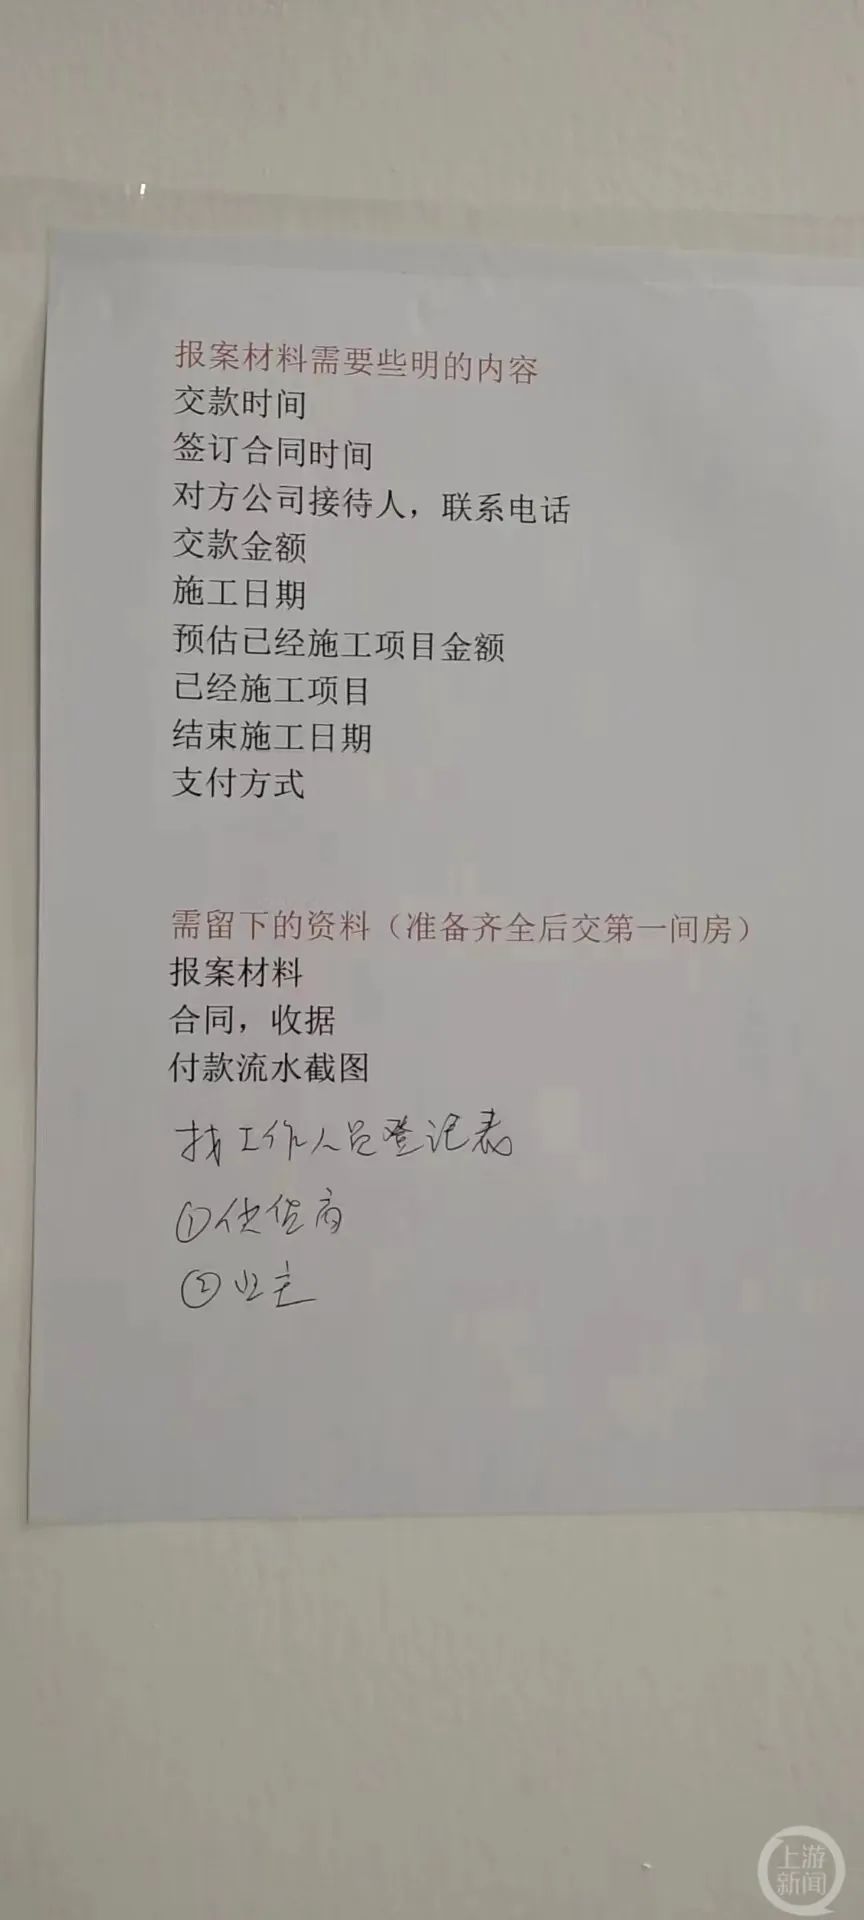 报案材料需要些明的内容
交款时间
签订合同时间
对方公司接待人，联系电话
交款金额
施工日期
预估已经施工项目金额
已经施工项目
结束施工日期
支付方式
需留下的资料（准备齐全后交第一间房）
报案材料
合同，收据
付款流水截图
找工作人员登记表
①供货商
②业主
上游
新闻